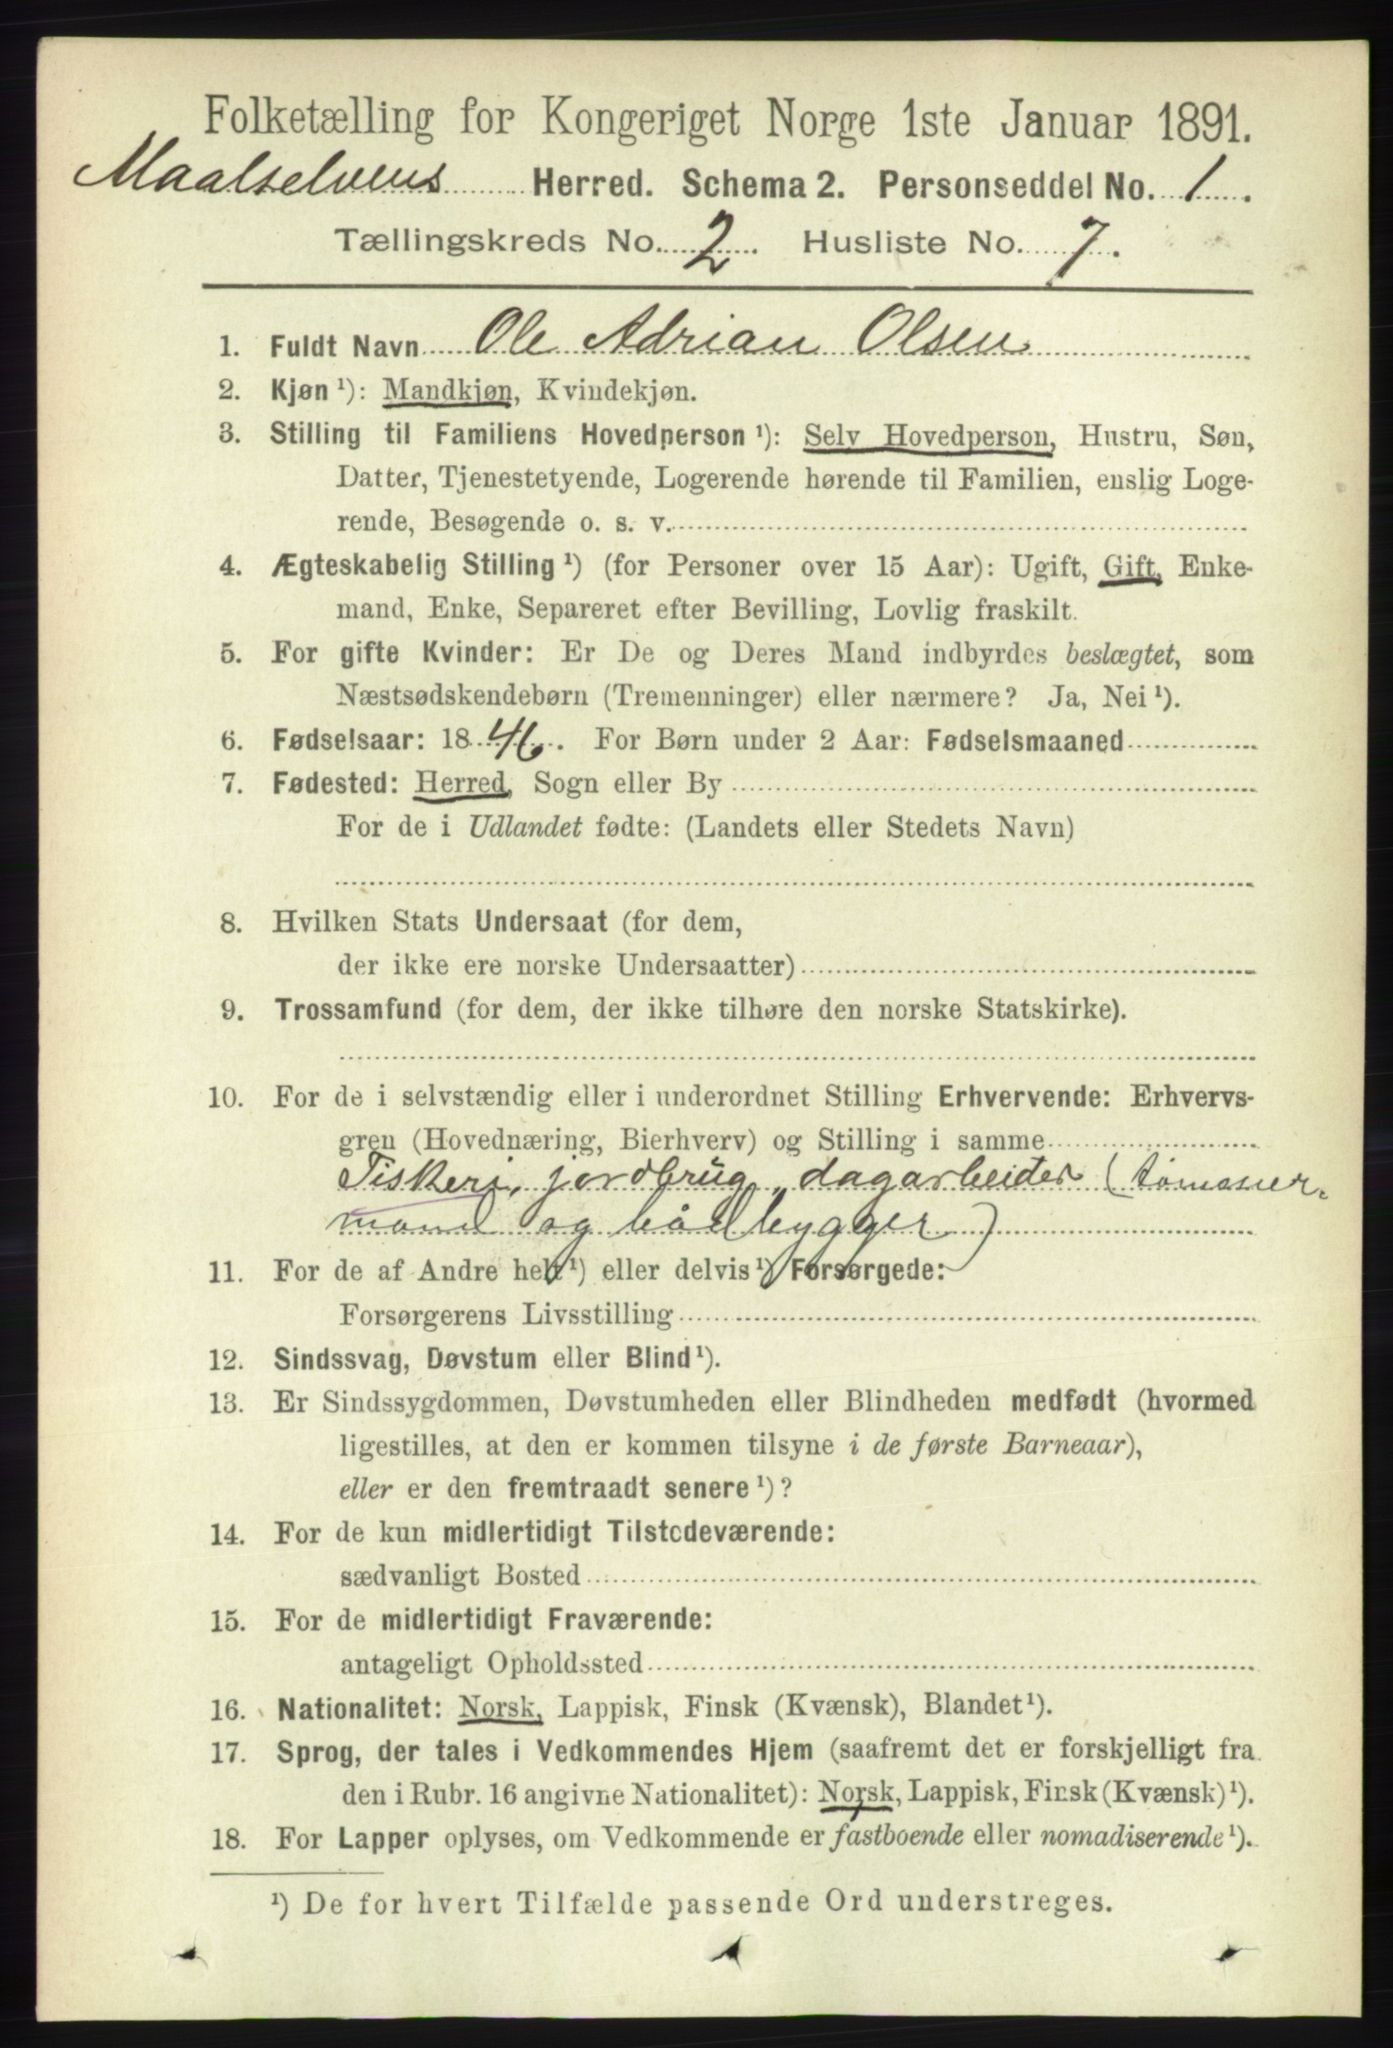 Folketælling for Kongeriget Norge 1ste Januar 1891.
Maalselvens Herred. Schema 2. Personseddel No. 1.
Tællingskreds No. 2. Husliste No. 7.
1. Fuldt Navn Ole Adrian Olsen
2. Kjøn ¹): Mandkjøn, Kvindekjøn.
3. Stilling til Familiens Hovedperson ¹): Selv Hovedperson, Hustru, Søn,
Datter, Tjenestetyende, Logerende hørende til Familien, enslig Loge-
rende, Besøgende o. s. v.
4. Ægteskabelig Stilling ¹) (for Personer over 15 Aar): Ugift, Gift, Enke-
mand, Enke, Separeret efter Bevilling, Lovlig fraskilt.
5. For gifte Kvinder: Er De og Deres Mand indbyrdes beslægtet, som
Næstsødskendebørn (Tremenninger) eller nærmere? Ja, Nei ¹).
6. Fødselsaar: 1846. For Børn under 2 Aar: Fødselsmaaned
7. Fødested: Herred, Sogn eller By
For de i Udlandet fødte: (Landets eller Stedets Navn)
8. Hvilken Stats Undersaat (for dem,
der ikke ere norske Undersaatter)
9. Trossamfund (for dem, der ikke tilhøre den norske Statskirke).
10. For de i selvstændig eller i underordnet Stilling Erhvervende: Erhvervs-
gren (Hovednæring, Bierhverv) og Stilling i samme
Fiskeri, jordbrug, dagarbeider (tømmer-
mand og bådbygger)
11. For de af Andre helt ¹) eller delvis ¹) Forsørgede:
Forsørgerens Livsstilling
12. Sindssvag, Døvstum eller Blind ¹).
13. Er Sindssygdommen, Døvstumheden eller Blindheden medfødt (hvormed
ligestilles, at den er kommen tilsyne i de første Barneaar),
eller er den fremtraadt senere ¹)?
14. For de kun midlertidigt Tilstedeværende:
sædvanligt Bosted
15. For de midlertidigt Fraværende:
antageligt Opholdssted
16. Nationalitet: Norsk, Lappisk, Finsk (Kvænsk), Blandet ¹).
17. Sprog, der tales i Vedkommendes Hjem (saafremt det er forskjelligt fra
den i Rubr. 16 angivne Nationalitet): Norsk, Lappisk, Finsk (Kvænsk) ¹).
18. For Lapper oplyses, om Vedkommende er fastboende eller nomadiserende ¹).
¹) De for hvert Tilfælde passende Ord understreges.